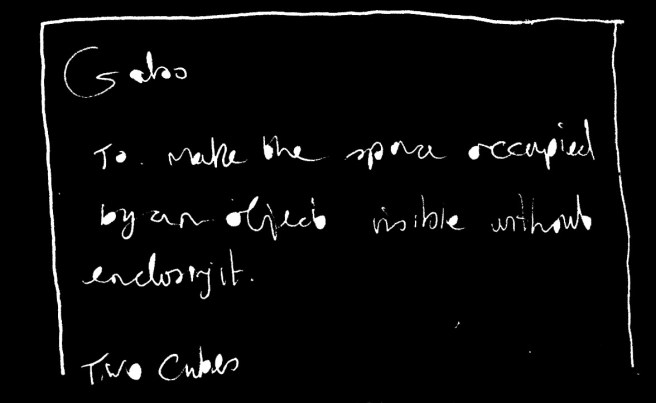 Gabo
To make the space occupied
by an object visible without
enclosing it.
Two Cubes